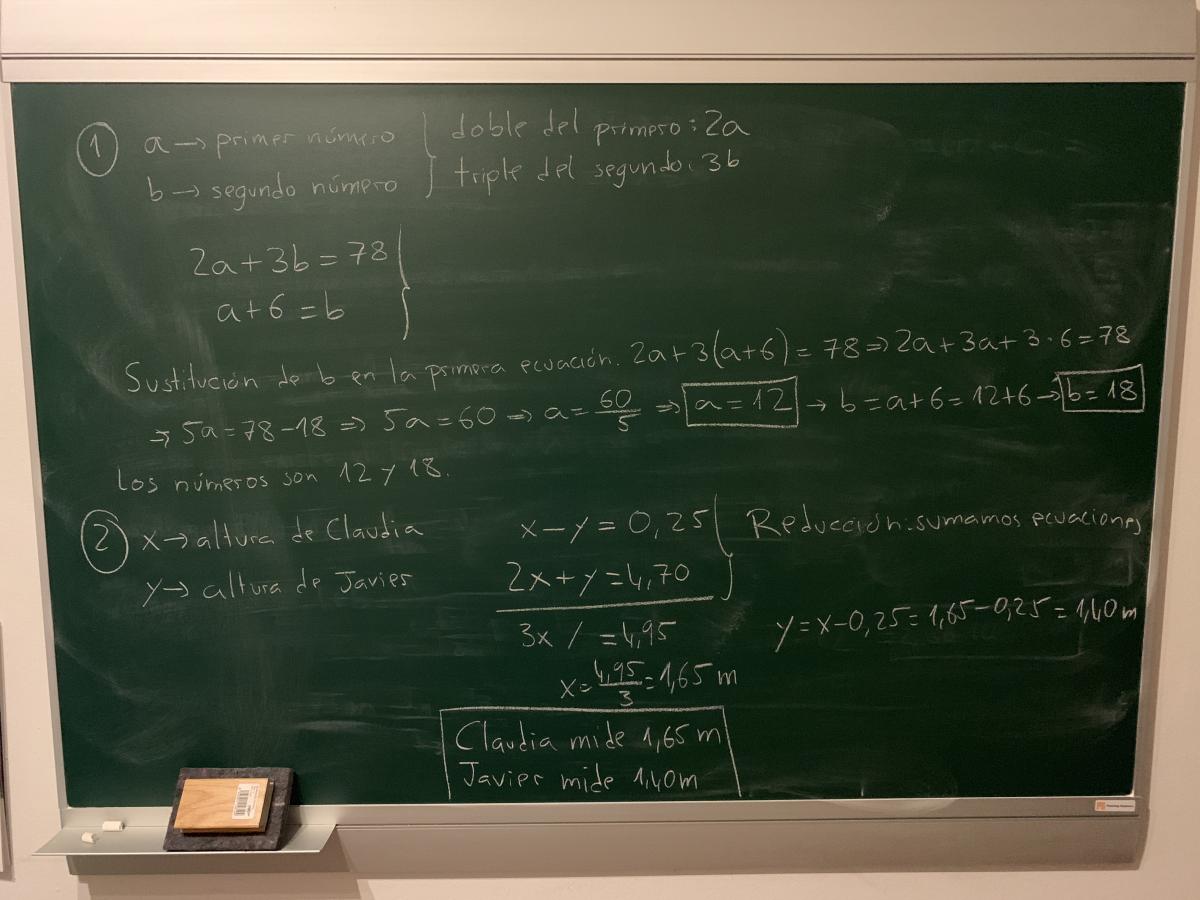 1 a → primer número } doble del primero: 2a
b → segundo número } triple del segundo: 3b
2a + 3b = 78
a + 6 = b
Sustitución de b en la primera ecuación. 2a + 3(a+6) = 78 ⇒ 2a + 3a + 3·6 = 78
⇒ 5a = 78 - 18 ⇒ 5a = 60 ⇒ a = 60/5 ⇒ a = 12 → b = a+6 = 12+6 → b = 18
Los números son 12 y 18.
2 x → altura de Claudia
y → altura de Javier
x - y = 0,25
2x + y = 4,70
3x / = 4,95
x = 4,95/3 = 1,65 m
Reducción: sumamos ecuaciones
y = x - 0,25 = 1,65 - 0,25 = 1,40 m
Claudia mide 1,65 m
Javier mide 1,40 m